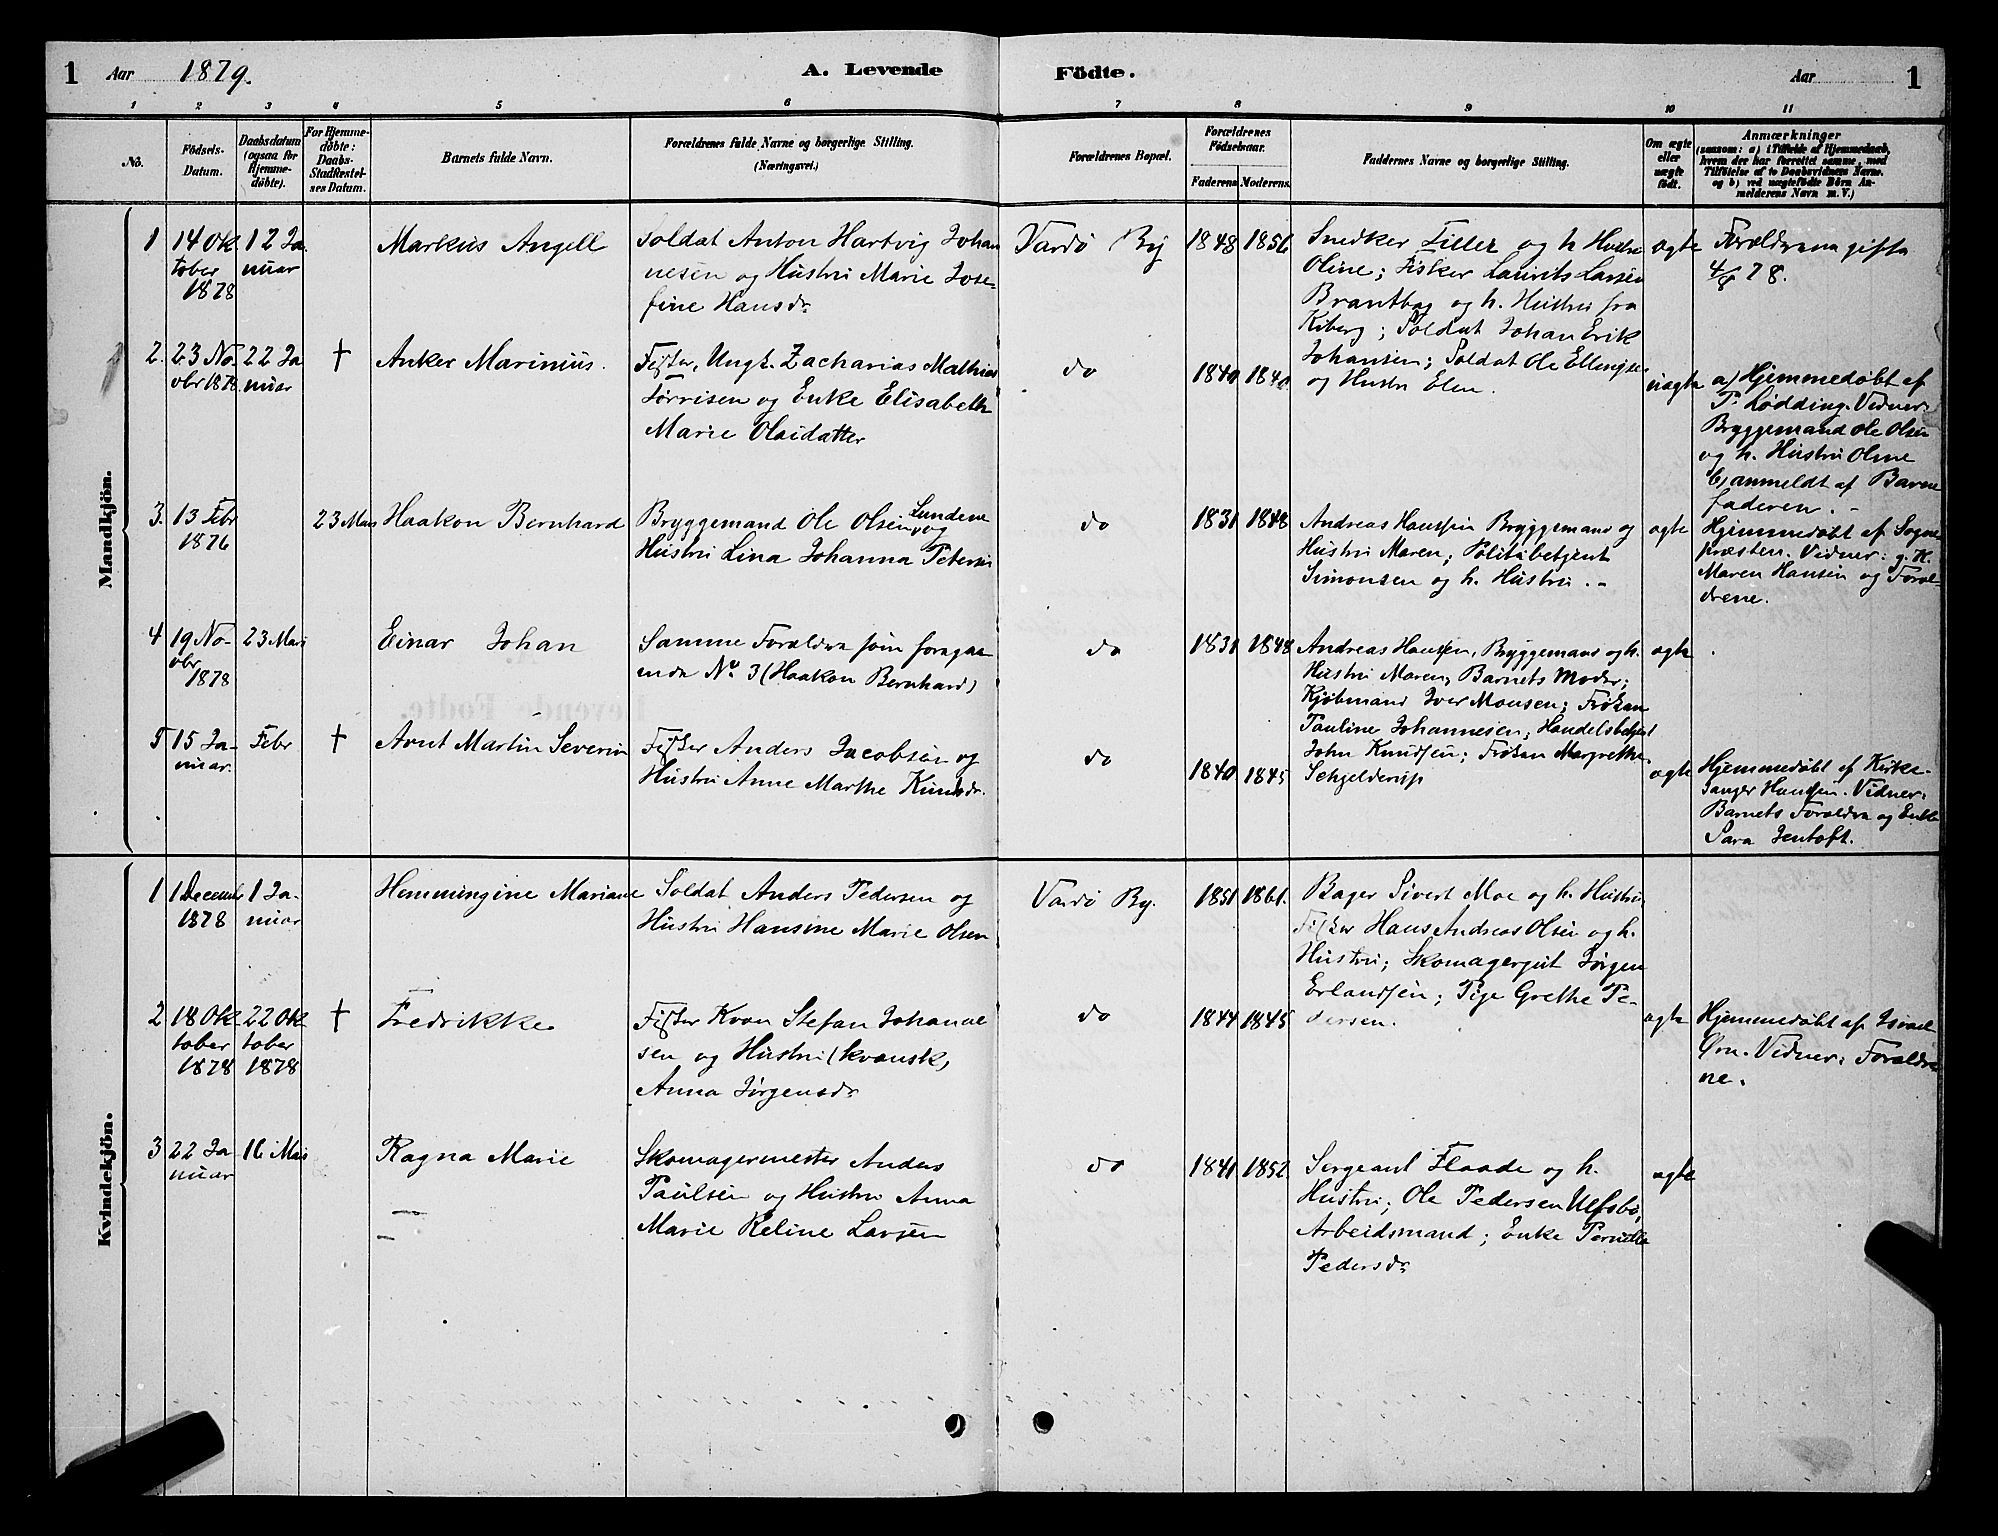 1 Aar 1879. A. Levende Födte. Aar 1
1 2 3 4 5 6 7 8 9 10 11
No.
Födsels-
Datum.
Daabsdatum
(ogsaa for
Hjemme-
döbte).
For Hjemme-
döbte:
Daabs-
Stadfæstel-
ses Datum.
Barnets fulde Navn.
Forældrenes fulde Navne og borgerlige Stilling.
(Næringsvei.)
Forældrenes Bopæl.
Forældrenes
Födselsaar.
Faderens Moderens.
Faddernes Navne og borgerlige Stilling.
Om ægte
eller
uægte
födt.
Anmærkninger
(saasom: a) i Tilfælde af Hjemmedaab,
hvem der har forrettet samme, med
Tilföielse af to Daabsvidners Navne.
og b) ved uægtefödte Börn An-
melderens Navn m. V.)
Mandkjön.
1
14 Ok
tober
1878
12 Ja
nuar
Markus Angell
Soldat Anton Hartvig Johan
nesen og Hustru Marie Jose-
fine Hansdr
Vardö By
1848 1856
Snedker Tiller og h Hustru
Oline; Fisker Laurits Larsen
Brantbag og h. Hustru fra
Kiberg; Soldat Johan Erik
Johansen; Soldat Ole Ellingsen
og Hustru Elen.
ægte
Forældrene gifte
4/8 78.
2.
23 No
vbr 1878
22 Ja
nuar
†
Anker Marinius.
Fisker, Ungk. Zacharias Mathias
Tørrisen og Enke Elisabeth
Marie Olaidatter
do
1840 1840
uægte
a) Hjemmedøbt af
P. Lødding. Vidner:
Bryggemand Ole Olsen
og h. Hustru Oline
b) anmeldt af Barne
faderen.
3.
13 Febr
1876
23 Mars
Haakon Bernhard
Bryggemand Ole Olsen Sundene og
Hustru Lina Johanna Petersen
do
1831 1848
Andreas Hanssen Bryggemand og
Hustru Maren; Politibetjent
Simonsen og h. Hustru.
ægte
Hjemmedøbt af Sogne
præsten. Vidner: g. K.
Maren Hansen og Foræl-
drene.
4
19 No-
vbr
1878
23 Mars
Einar Johan
Samme Forældre som foregaa
ende No 3 (Haakon Bernhard)
do
1831 1848
Andreas Hansen, Bryggemand og h.
Hustru Maren; Barnets Moder;
Kjøbmand Iver Monsen; Frøken
Pauline Johannesen; Handelsbetjent
John Knudsen; Frøken Margrethe
Schjelderup
ægte
5
15 Ja-
nuar.
Febr
†
Arnt Martin Severin
Fisker Anders Jacobsen og
Hustru Anne Marthe Knudsdr.
do
1840 1845
ægte
Hjemmedøbt af Kirke-
sanger Hanssen. Vidner:
Barnets Forældre og Enke
Sara Jentoft.
Kvindekjön.
1
1 Decembr
1878
1 Ja-
nuar
Hemmingine Mariane
Soldat Anders Pedersen og
Hustru Hansine Marie Olsen
Vardö By.
1851 1861.
Bager Sivert Moe og h. Hustru
Fisker Hans Andreas Olsen og h.
Hustru; Skomagergut Jørgen
Erlandsen; Pige Grethe Pe-
dersen.
2
18 Ok
tober
1878
22 Ok
tober
1878
†
Fredrikke
Fisker Kvæn Stefan Johanne
sen og Hustru (kvænsk)
Anna Jørgensdr
do
1844 1845
ægte
Hjemmedøbt af Israel
Ørn. Vidner: Forældre
ne.
3
22 Ja
nuar
16 Mars
Ragna Marie
Skomagermester Anders
Paulsen og Hustru Anna
Marie Reline Larsen
do
1841 1852.
Sergeant Flaade og h.
Hustru; Ole Pedersen Ulfsbø,
Arbeidsmand; Enke Pernille
Pedersdr
ægte